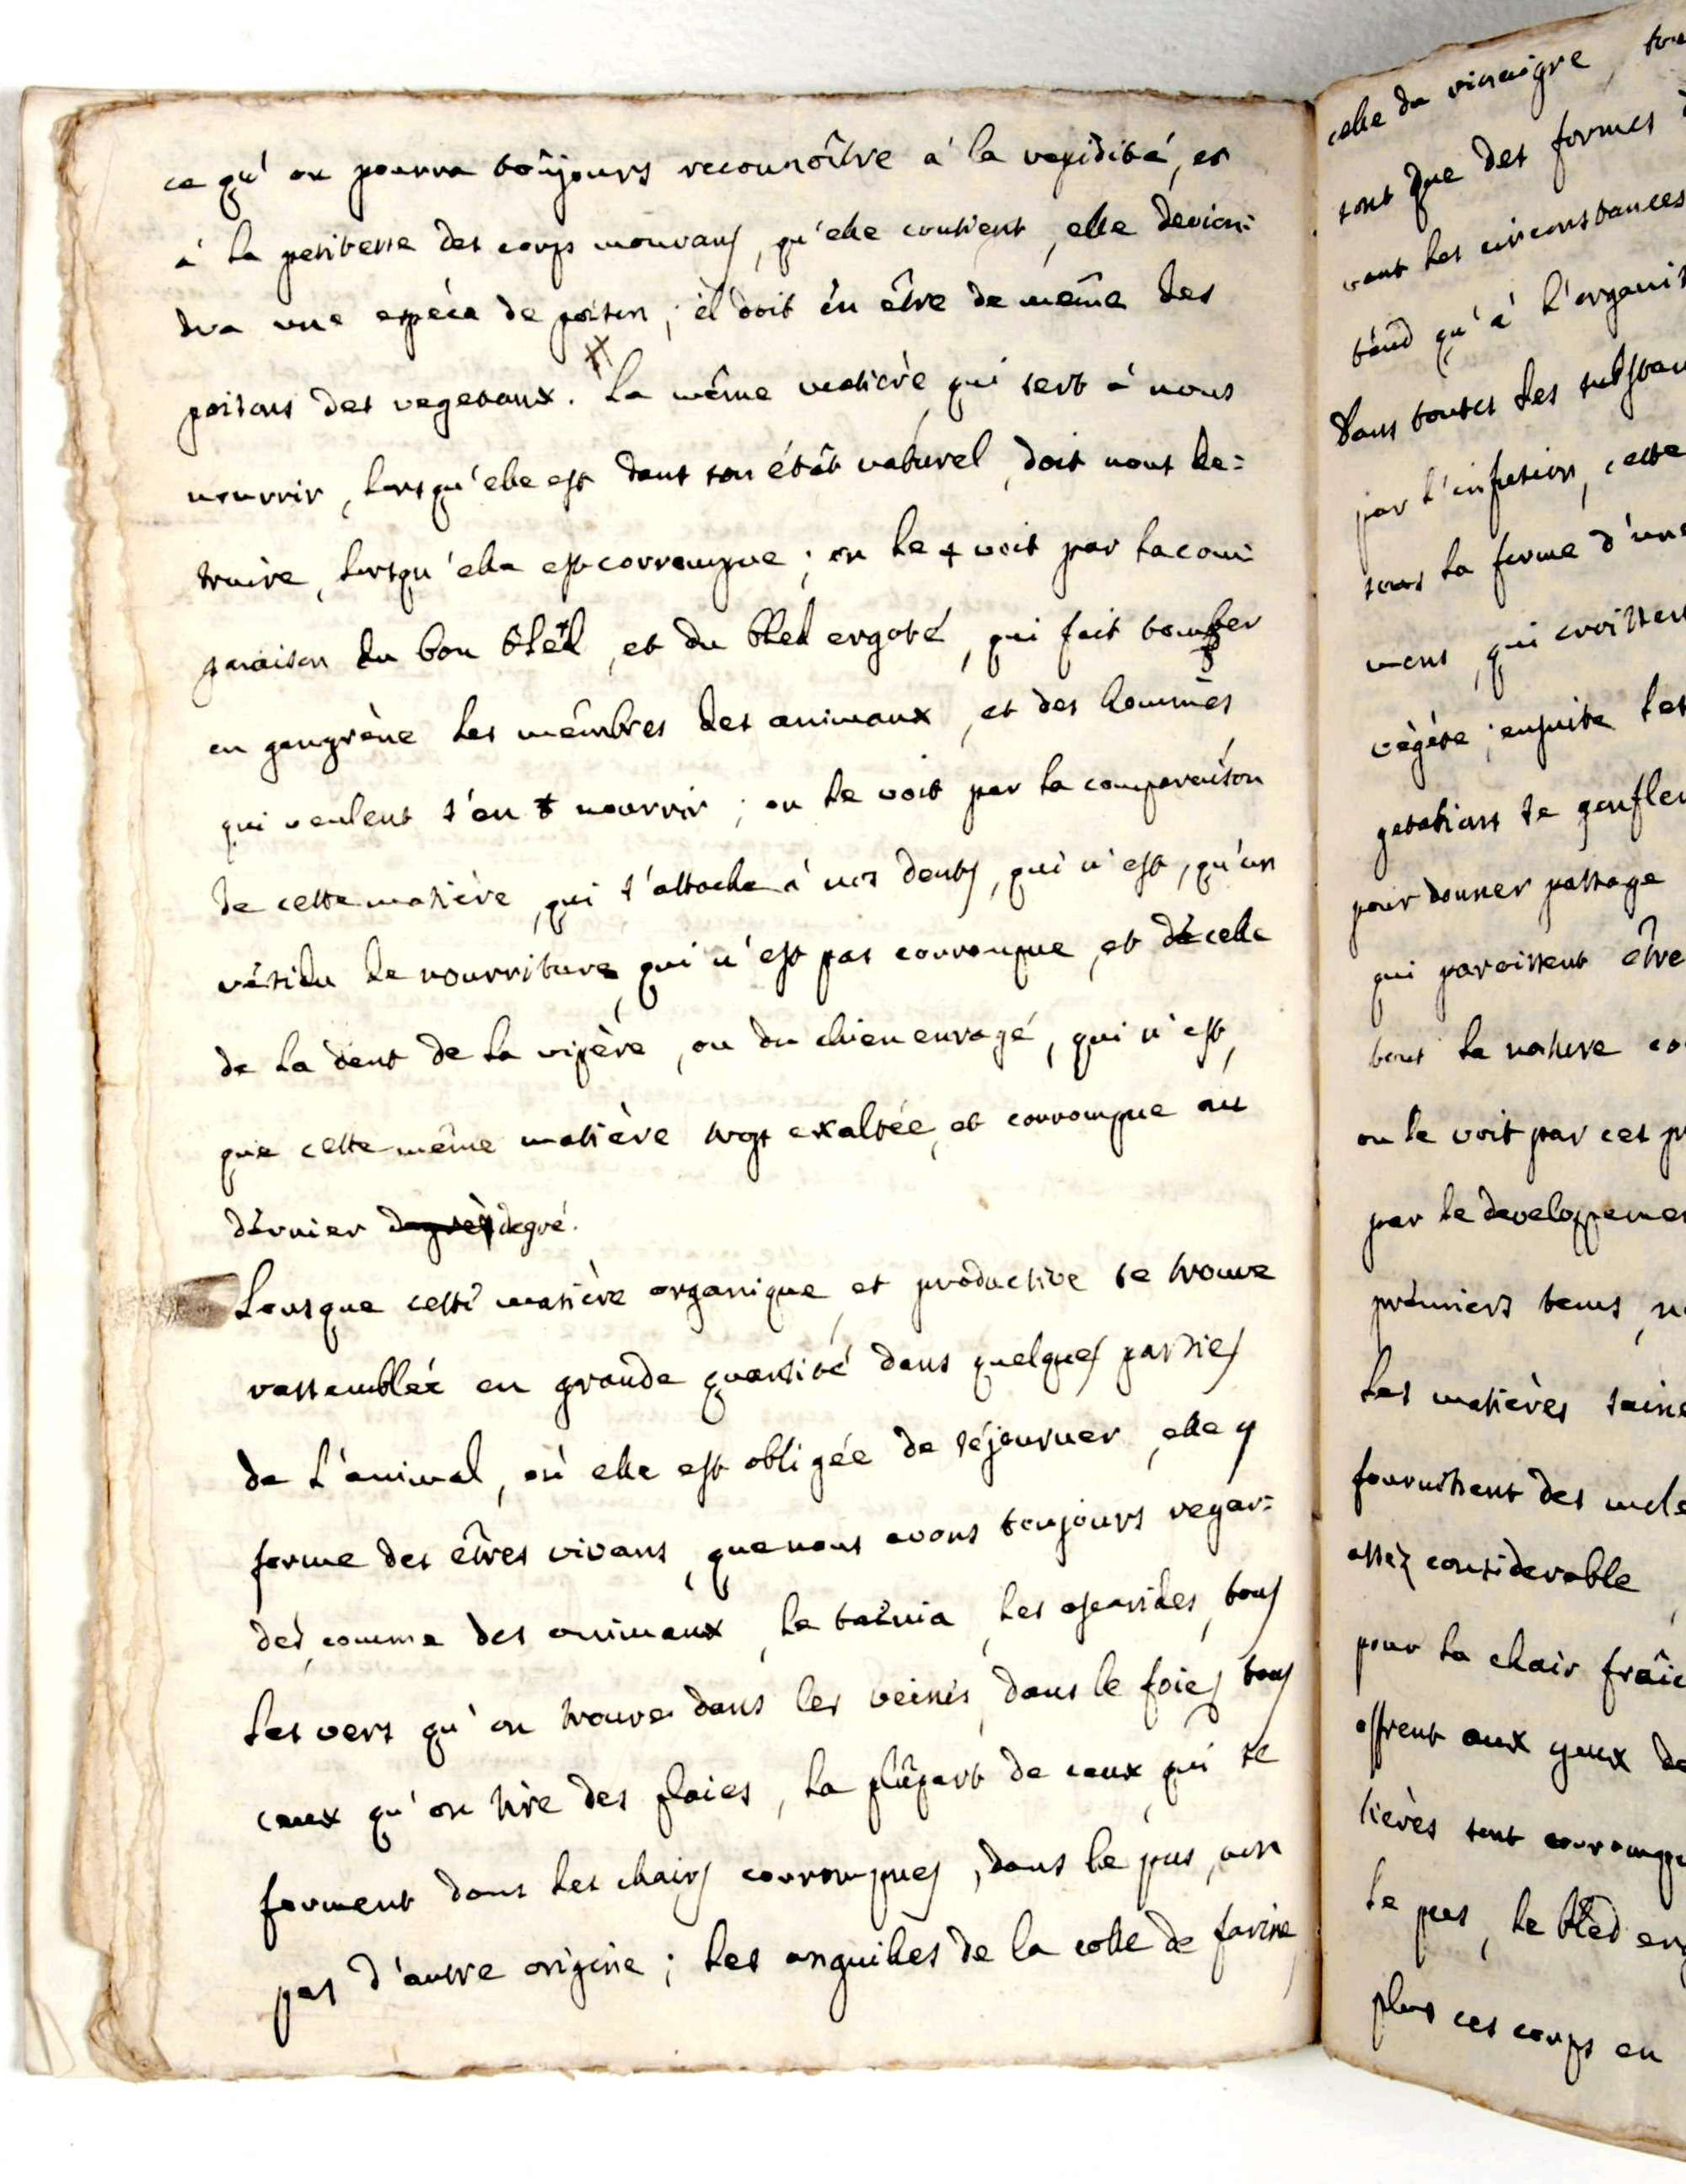 ce qu'on pourra toûjours reconnoître à la rapidité, et
à la petitesse des corps mouvans, qu'elle contient, elle devien=
dra une espéce de poison; il doit èn être de même des
poisons des vegetaux. La même matière, qui sert à nous
nourrir, lorsqu'elle est dans son état naturel, doit nous de=
truire, lorsqu'elle est corrompue; on le voit par la com=
paraison du bon bléd, et du bled ergoté, qui fait tomber
en gangrène les mêmbres des animaux, et des hommes
qui veulent s'en nourrir; on le voit par la comparaison
de cette matière, qui s'attache à nos dents, qui n'est, qu'un
résidu de nourriture, qui n'est pas corrompue, et de celle
de la dent de la vipère, ou du chien enragé, qui n'est,
que cette même matière trop exaltée, et corrompue au
dérnier degrès degré.
Lorsque cette matière organique, et productive se trouve
rassemblée en grande quantité dans quelques parties
de l'animal, où elle est obligée de séjourner, elle y
forme des êtres vivans, que nous avons toujours regar=
dés, comme des animaux, le taènia, les ascarides, tous
les vers qu'on trouve dans les veines, dans le foie, tous
ceux qu'on tire des plaies, la plûpart de ceux, qui se
forment dans les chairs corrompues, dans le pus, n'on
pas d'autre origine; les anguilles de la colle de farine,
celle du vinaigre, tou
sont que des formes d
vant les circonstances
tend qu'à l'organis
Dans toutes les substan
par l'infusion, cette
sous la forme d'une
mens, qui croissen
végète; ensuite les
getations se gonflen
pour donner passage
qui paroissent être
tout la nature co
on le voit par ces pr
par le developpemen
prémiers tems, n
les matières saine
fournissent des mole
assez considerable,
pour la chair fraîc
offrent aux yeux de
tières sont corrompu
le pus, le bléd erg
plus ces corps en